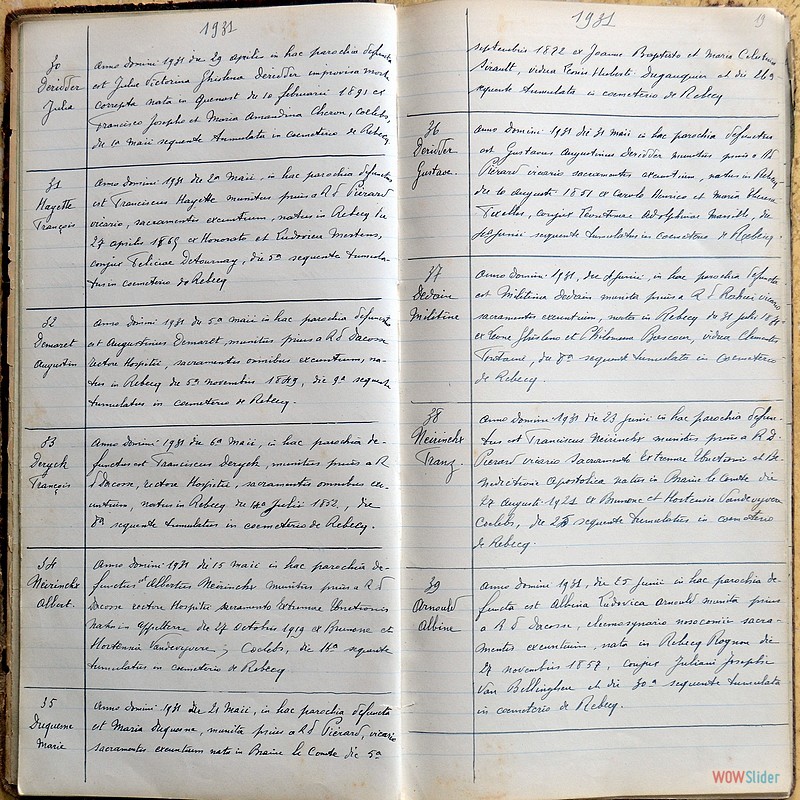 1931
30
Deridder
Julia
Anno Domini 1931 die 29 aprilis in hac parochia defuncta
est Julia Victorina Ghislena Deridder improvisa morte
correpta nata in Quenast die 10 februarii 1891 ex
Francisco Josepho et Maria Amandina Cheron, Coelebs,
die 1a maii sequente tumulata in coemeterio de Rebecq.
31
Hayette
François
Anno Domini 1931 die 2a maii, in hac parochia defunctus
est Franciscus Hayette munitus prius a R d Piérard
vicario, sacramentis exeuntium, natus in Rebecq die
27 aprilis 1865 ex Honorato et Ludovica Mertens,
conjux Feliciae Detournay, die 5a sequente tumula-
tus in coemeterio de Rebecq
32
Demaret
Augustin
Anno Domini 1931 die 5a maii in hac parochia defunctus
est Augustinus Demaret, munitus prius a R d Dacosse
rectore Hospitii, sacramentis omnibus exeuntium, na-
tus in Rebecq die 5a novembris 1849, die 9a sequente
tumulatus in coemeterio de Rebecq.
33
Deryck
François
Anno Domini 1931 die 6a maii, in hac parochia de-
functus est Franciscus Deryck, munitus prius a R
d Dacosse, rectore Hospitii, sacramentis omnibus ex-
euntium, natus in Rebecq die julii 1852, die
8a sequente tumulatus in coemeterio de Rebecq.
34
Neirinckx
Albert.
Anno Domini 1931 die 15 maii in hac parochia de-
functus est Albertus Neirinckx munitus prius a R d
Dacosse rectore Hospitii sacramento Extremae Unctionis
nato in die 27 octobris 1919 ex Brunone et
Hortensia Vandevyvere; Coelebs, die 16a sequente
tumulatus in coemeterio de Rebecq
35
Duquesne
Marie
Anno Domini 1931 die 21 maii, in hac parochia defuncta
est Maria Duquesne, munita prius a R d Piérard, vicario
sacramentis exeuntium nata in Braine le Comte die 5a
1931
19
septembris 1872 ex Joanne Baptista et Maria
Sirault, vidua Huberti Duganquier et die 26a
sequente tumulata in coemeterio de Rebecq
36
Deridder
Gustave.
Anno Domini 1931 die 31 maii in hac parochia defunctus
est Gustavus Augustinus Deridder munitus prius a R d
Piérard vicario sacramentis exeuntium, natus in Rebecq
die 10 augusti 1851 ex Carolo Henrico et Maria Theresa
conjux Adolphinae die
junii sequente tumulatus in coemeterio de Rebecq.
37
Dedain
Militine
Anno Domini 1931, die junii, in hac parochia defuncta
est Militina Dedain munita prius a R d vicario
sacramentis exeuntium, nata in Rebecq die 31 julii
ex Leone Ghisleno et Philomena vidua Clementis
Fontaine, die 8a sequente tumulata in coemeterio
de Rebecq.
38
Neirinckx
Franz.
Anno Domini 1931 die 23 junii in hac parochia defunc-
tus est Franciscus Neirinckx munitus prius a R D.
Pierard vicario Sacramento Extremae Unctionis et Be
nedictione Apostolica natus in Braine le Comte die
27 augusti 1921 ex Brunone et Hortensia Vandevyvere
Coelebs, die 25 sequente tumulatus in coemeterio
de Rebecq.
39
Arnould
Albine
Anno Domini 1931, die 25 junii in hac parochia de-
functa est Albina Ludovica Arnould munita prius
a R d Dacosse, eleemosynario nosocomii sacra-
mentis exeuntium, nata in Rebecq Rognon die
27 novembris 1857, conjux Juliani Josephi
Van Bellinghen et die 30a sequente tumulata
in coemeterio de Rebecq.
WOWSlider